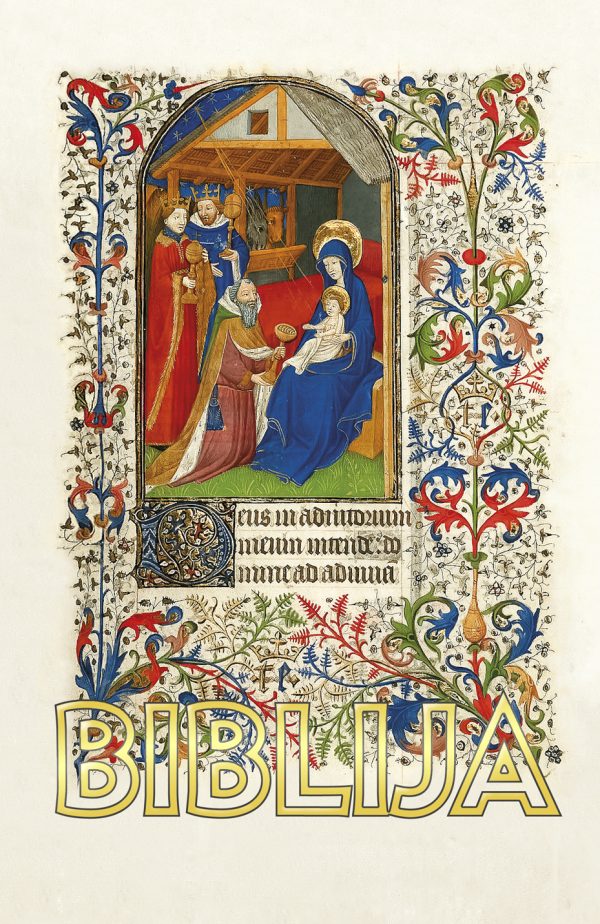 Deus in adiutorium
meum intende: do
mine ad adiuua
BIBLIJA